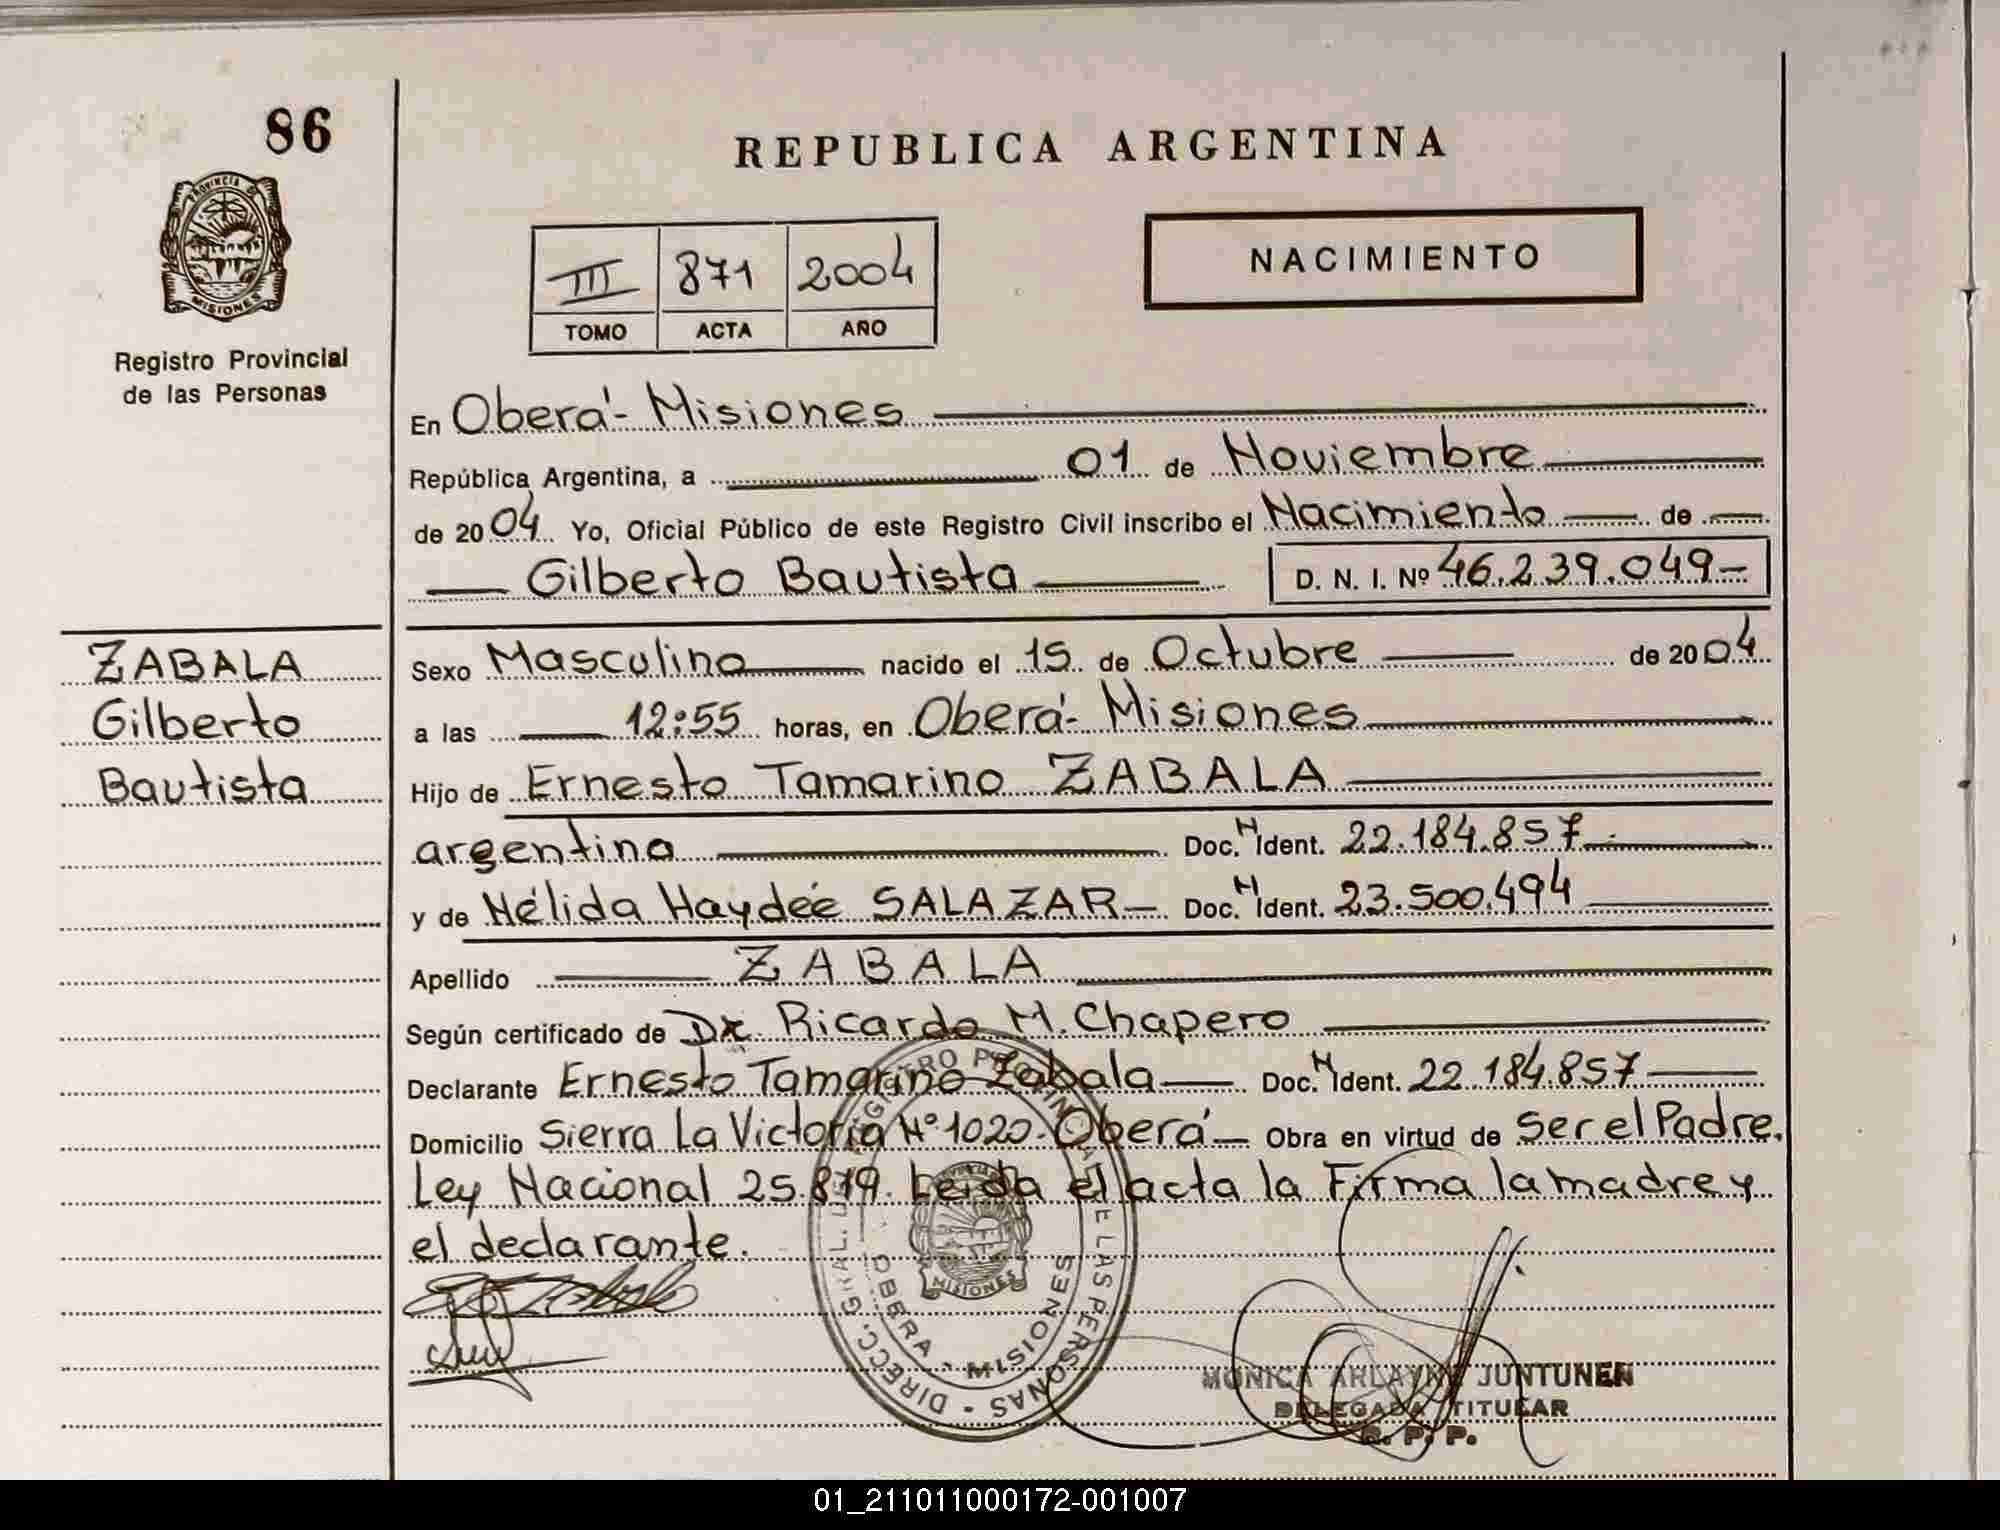 86
REPUBLICA ARGENTINA
PROVINCIA DE
MISIONES
Registro Provincial
de las Personas
III 871 2004
TOMO ACTA AÑO
NACIMIENTO
En Oberá - Misiones
República Argentina, a 01 de Noviembre
de 2004 Yo, Oficial Público de este Registro Civil inscribo el Nacimiento de
Gilberto Bautista D. N. I. Nº 46.239.049-
ZABALA
Gilberto
Bautista
Sexo Masculino nacido el 15 de Octubre de 2004
a las 12:55 horas, en Oberá - Misiones
Hijo de Ernesto Tamarino ZABALA
argentino Doc. N Ident. 22.184.857
y de Nélida Haydée SALAZAR Doc. N Ident. 23.500.494
Apellido ZABALA
Según certificado de Dr. Ricardo M. Chapero
Declarante Ernesto Tamarino Zabala Doc. N Ident. 22.184.857
Domicilio Sierra La Victoria Nº 1020 - Oberá Obra en virtud de ser el Padre.
Ley Nacional 25.819. Leida el acta la Firma la madre y
el declarante.
DIRECC. GRAL. DEL REGISTRO PROVINCIAL DE LAS PERSONAS
OBERA - MISIONES
MISIONES
MONICA ARLAYNE JUNTUNEN
DELEGADA TITULAR
R. P. P.
01_211011000172-001007